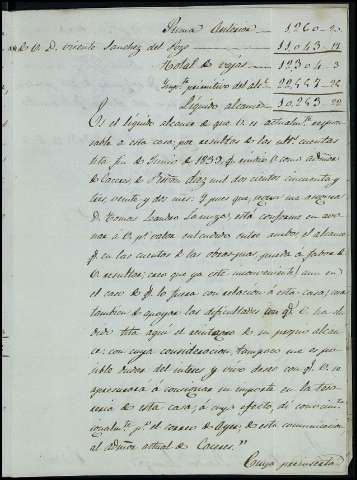 Suma Anterior 1260-20
de V. D. Vicente Sanchez del Pozo 11,043-17
Total de vajas 12,304 3
primitivo del alc.e 22,557-25
Liquido alcance 10,253-22
Es el liquido alcance de que V. es actualm.te respon-
sable a esta casa; por resultas de las ult.s cuentas
fin de Junio de 1839 q. rindio V. como admor.
de Caceres, de diez mil dos cientos cincuenta y
tres, veinte y dos mrs. Y pues que, segun me asegura
D. Tomas Leandro está conforme en
a V. p.r valor entendido entre ambos, el alcance
q. en las cuentas de las obras pias pueda a favor de
V. resultar; caso que ya este inconveniente, aun en
el caso de q. lo fuera con relacion á esta casa; cesa
tambien de apoyar las dificultades con q. V. ha
aqui el reintegro de su propio alcan-
ce: con cuya consideracion, tampoco me es po-
sible dudar del interes y vivo deseo con q. V. se
apresurará á consignar su importe en la teso-
reria de esta casa; á cuyo efecto, di
p.r el correo de Ayer, de esta comunicacion
al admor. actual de Caceres."
Cuya